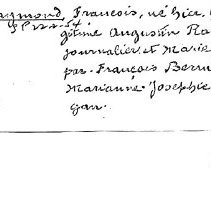 aymond, François, né hier,
gitime Augustin Ra
journalier et Marie
par. François Berru
Marianne Josephie
gan.